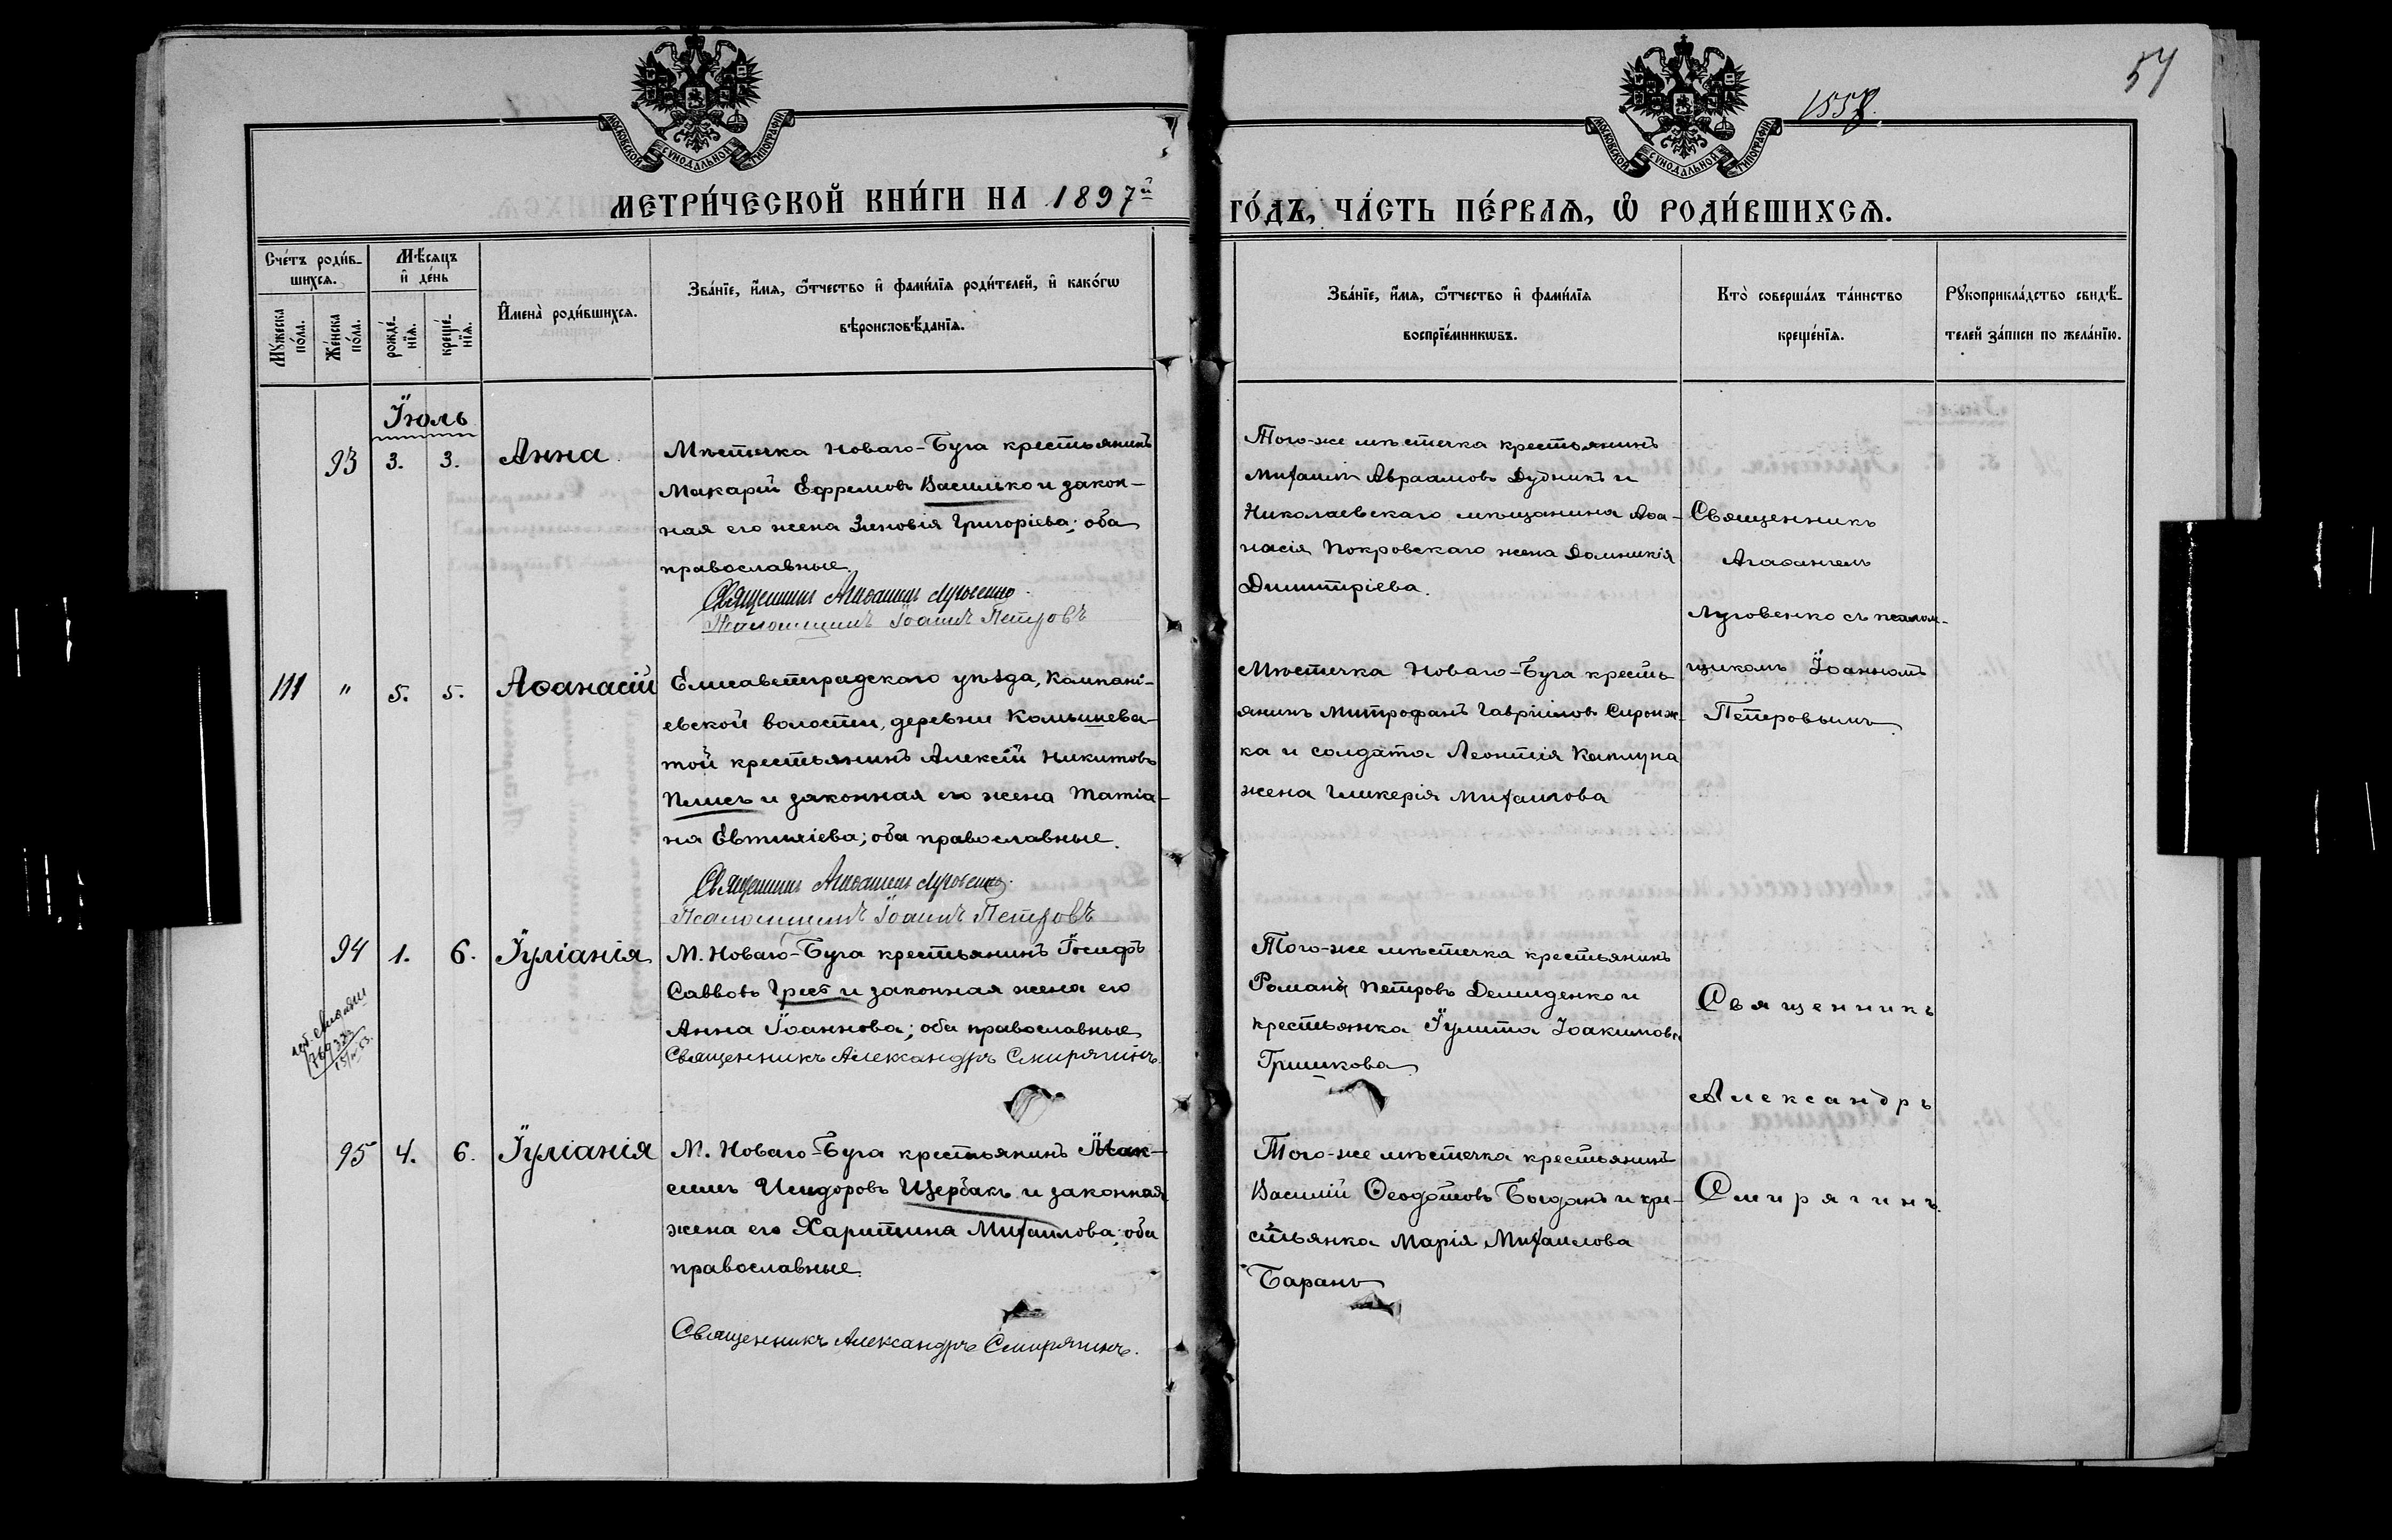 57
1558
МОСКОВСКОЙ СѴНОДАЛЬНОЙ ТИПОГРАФІИ
МОСКОВСКОЙ СѴНОДАЛЬНОЙ ТИПОГРАФІИ
МЕТРИ́ЧЕСКОЙ КНИ́ГИ НА 1897й
ГО́ДЪ, ЧА́СТЬ ПЕ́РВАѦ, Ѡ҆ РОДИ́ВШИХСѦ.
Сче́тъ роди́в-
шихсѧ.
Мѣ́сяцъ
и҆ де́нь
Му́жеска по́ла.
Же́нска по́ла.
рожде́-нїѧ.
креще́-нїѧ.
И҆мена̀ роди́вшихсѧ.
Зва́нїе, и҆́мѧ, ѻ҆́тчество и҆ фами́лїѧ роди́телей, и҆ како́гѡ
вѣроисповѣ́данїѧ.
Зва́нїе, и҆́мѧ, ѻ҆́тчество и҆ фами́лїѧ
воспрїе́мникѡвъ.
Кто̀ соверша́лъ та́инство
креще́нїѧ.
Рꙋкоприкла́дство свидѣ́-
телей за́писи по жела́нїю.
Іюль
93 3. 3. Анна
Мѣстечка Новаго-Буга крестьянинъ
Макарій Ефремовъ Василько и закон-
ная его жена Зиновія Григоріева; оба
православные.
Священникъ Агаѳангелъ Луговенко.
Псаломщикъ Іоаннъ Петровъ
Того-же мѣстечка крестьянинъ
Михаилъ Авраамовъ Дудникъ и
Николаевскаго мѣщанина Аѳа-
насія Покровскаго жена Домникія
Димитріева.
Священникъ
Агаѳангелъ
Луговенко съ псалом-
щикомъ Іоанномъ
Петровымъ
111 " 5. 5. Аѳанасій
Елисаветградскаго уѣзда, Компані-
евской волости, деревни Комышева-
той крестьянинъ Алексій Никитовъ
и законная его жена Татіа-
на Евтихіева; оба православные.
Священникъ Агаѳангелъ Луговенко.
Псаломщикъ Іоаннъ Петровъ
Мѣстечка Новаго-Буга кресть-
янинъ Митрофанъ Гавріиловъ
ка и солдата Леонтія Каплуна
жена Гликерія Михаилова
94 1. 6. Іуліанія
М. Новаго-Буга крестьянинъ Іосифъ
Саввовъ и законная жена его
Анна Іоаннова; оба православные
Священникъ Александръ Смирягинъ.
Того-же мѣстечка крестьянинъ
Романъ Петровъ Демиденко и
крестьянка Іулита Іоакимова
Гришкова
Священникъ
Александръ
Смирягинъ.
95 4. 6. Іуліанія
М. Новаго-Буга крестьянинъ Мак-
симъ Исидоровъ Щербакъ и законная
жена его Харитина Михаилова; оба
православные.
Священникъ Александръ Смирягинъ.
Того-же мѣстечка крестьянинъ
Василій Ѳеодотовъ Богданъ и кре-
стьянка Марія Михаилова
Баранъ